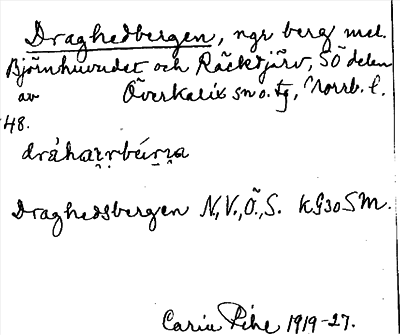 Draghedbergen, ngr berg mel.
Björnhuvudet och Räcktjärv, SÖ delen
av Överkalix sn o. tg, Norrb. l.
48.
dráhaṛrbérṇa
Draghedsbergen N., V., Ö., S. kG30SM.
Carin Pihl 1919-27.